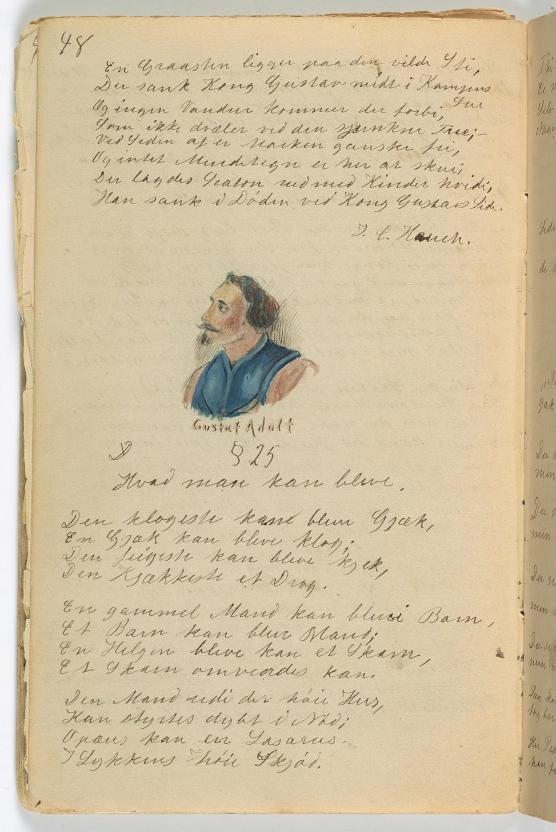 48
En Graasten ligger paa den vilde Sti,
Der sank Kong Gustav midt i Kampens
Og ingen Vandrer kommer der forbi,
Som ikke dvæler ved den Træ;
Ved Siden af er Marken ganske fri,
Og intet Mindetegn er her at skue,
Der lagdes med Kinder hvide,
Han sank i Døden ved Kong Gustavs Side.
J. C. Hauch.
Gustaf Adolf
§ 25
Hvad man kan blive.
Den klogeste kan blive Gjæk,
En Gjæk kan blive klog;
Den feigeste kan blive kjæk,
Den Kjækkeste et Drog.
En gammel Mand kan blive Barn,
Et Barn kan blive Mand;
En Helgen blive kan et Skarn,
Et Skarn omvendes kan.
Den Mand udi det høie Huus,
Kan styrtes dybt i Nød;
kan en Lasarus
I Lykkens høie Skjød.